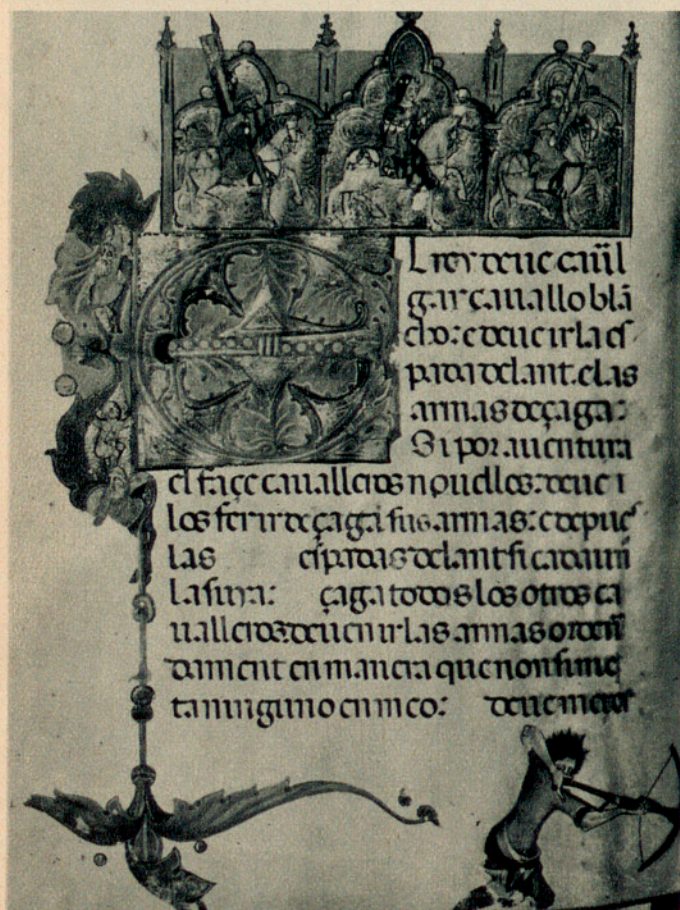 EL rey deue caual
gar cauallo blã
cho: e deue ir la es
pada delant. e las
armas de çaga:
Si por auentura
el façe caualleros nouellos: deue i
los ferir de çaga sus armas: e depues
las espadas delant si cada un
la suya: çaga todos los otros ca
ualleros: deuen ir las armas orden
dament en manera que non
ta ninguno en meo: deue